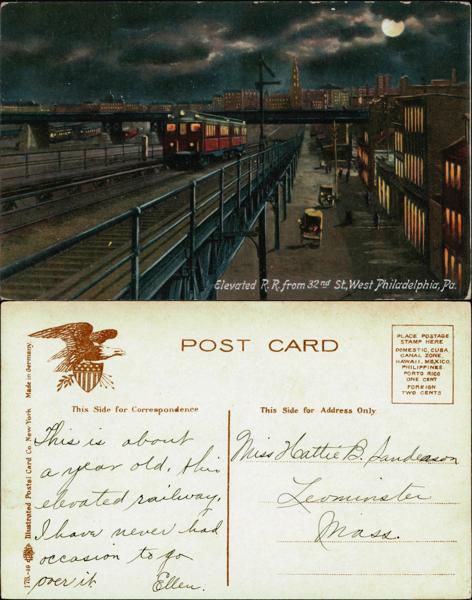 Elevated R.R. from 32nd St, West Philadelphia, Pa.
POST CARD
PLACE POSTAGE
STAMP HERE
DOMESTIC, CUBA
CANAL ZONE,
HAWAII, MEXICO,
PHILIPPINES,
PORTO RICO
ONE CENT
FOREIGN
TWO CENTS
This Side for Correspondence
This Side for Address Only
This is about
a year old, this
elevated railway.
I have never had
occasion to go
over it. Ellen.
Miss Hattie B. Sanderson
Leominster
Mass.
178-10 Illustrated Postal Card Co. New York Made in Germany